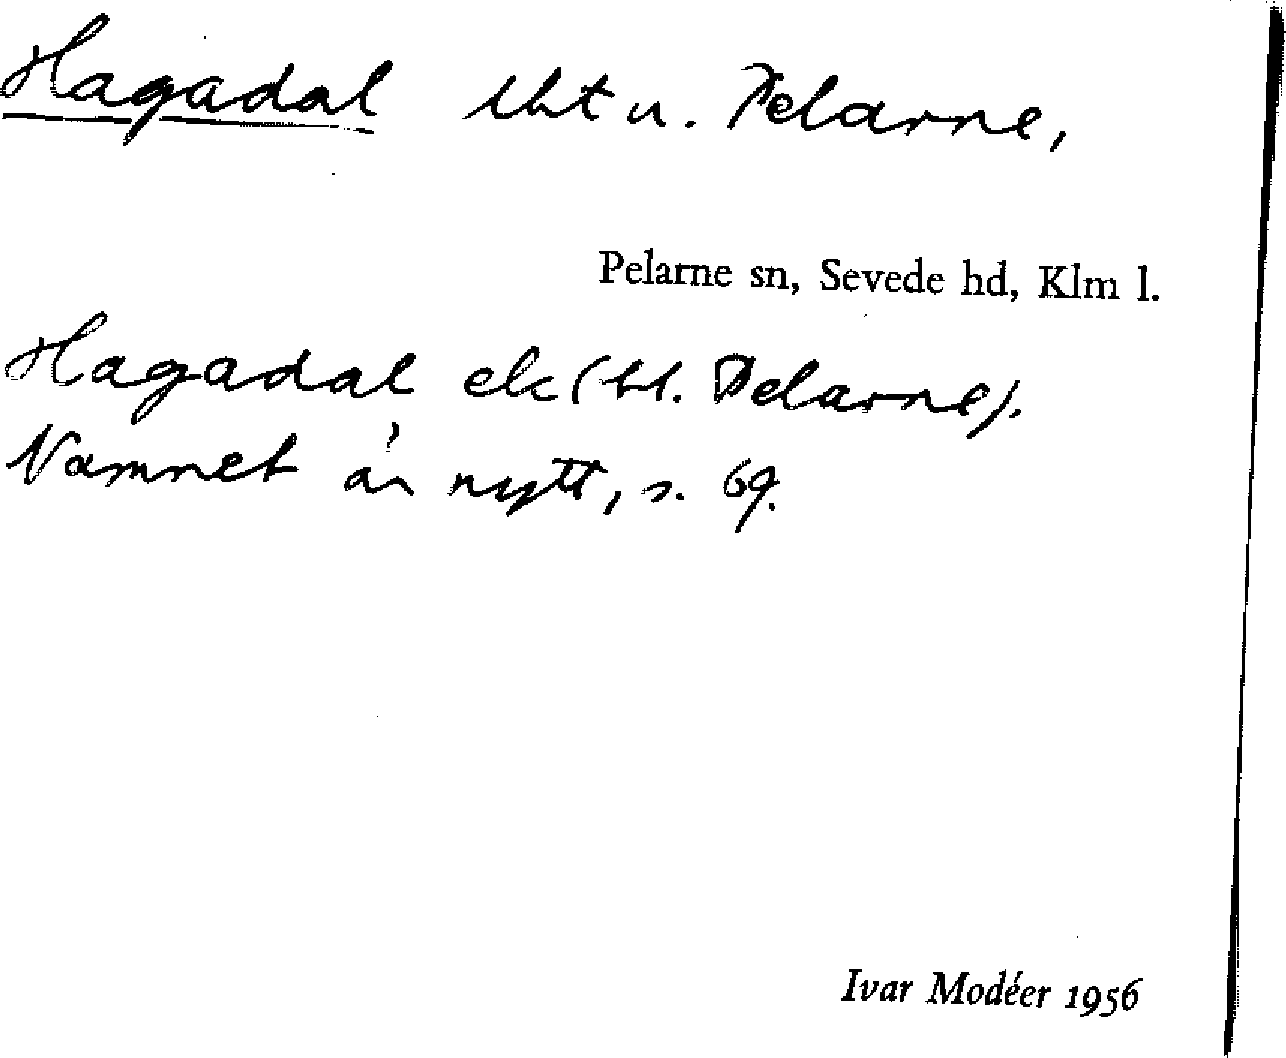 Hagadal lht u. Pelarne,
Pelarne sn, Sevede hd, Klm l.
Hagadal ek (bl. Pelarne).
Namnet är nytt, s. 69.
Ivar Modéer 1956